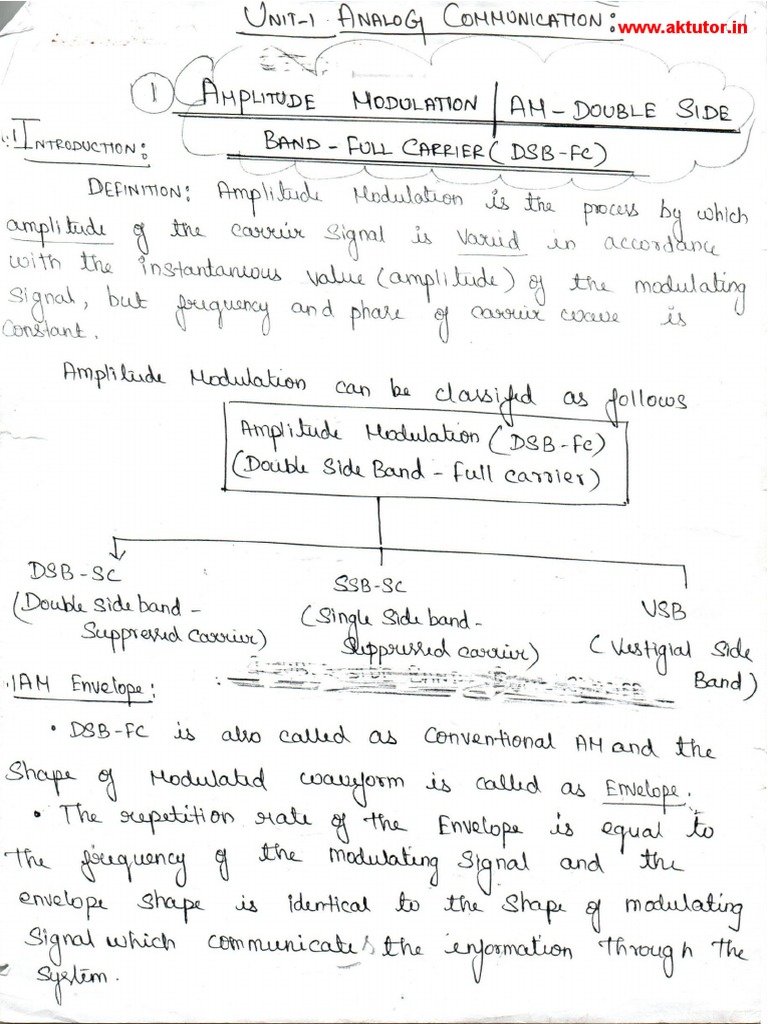 UNIT-1 ANALOG COMMUNICATION:
www.aktutor.in
1 AMPLITUDE MODULATION / AM - DOUBLE SIDE
BAND - FULL CARRIER (DSB-FC)
.1 INTRODUCTION:
DEFINITION: Amplitude Modulation is the process by which
amplitude of the carrier signal is varied in accordance
with the instantaneous value (amplitude) of the modulating
signal, but frequency and phase of carrier wave is
constant.
Amplitude Modulation can be classified as follows
Amplitude Modulation (DSB-FC)
(Double Side Band - Full carrier)
DSB-SC
(Double Side band -
Suppressed carrier)
SSB-SC
(Single Side band -
Suppressed carrier)
VSB
(Vestigial Side
Band)
.1 AM Envelope:
• DSB-FC is also called as Conventional AM and the
Shape of Modulated waveform is called as Envelope.
• The repetition rate of the Envelope is equal to
the frequency of the modulating signal and the
envelope shape is identical to the shape of modulating
signal which communicates the information through the
system.